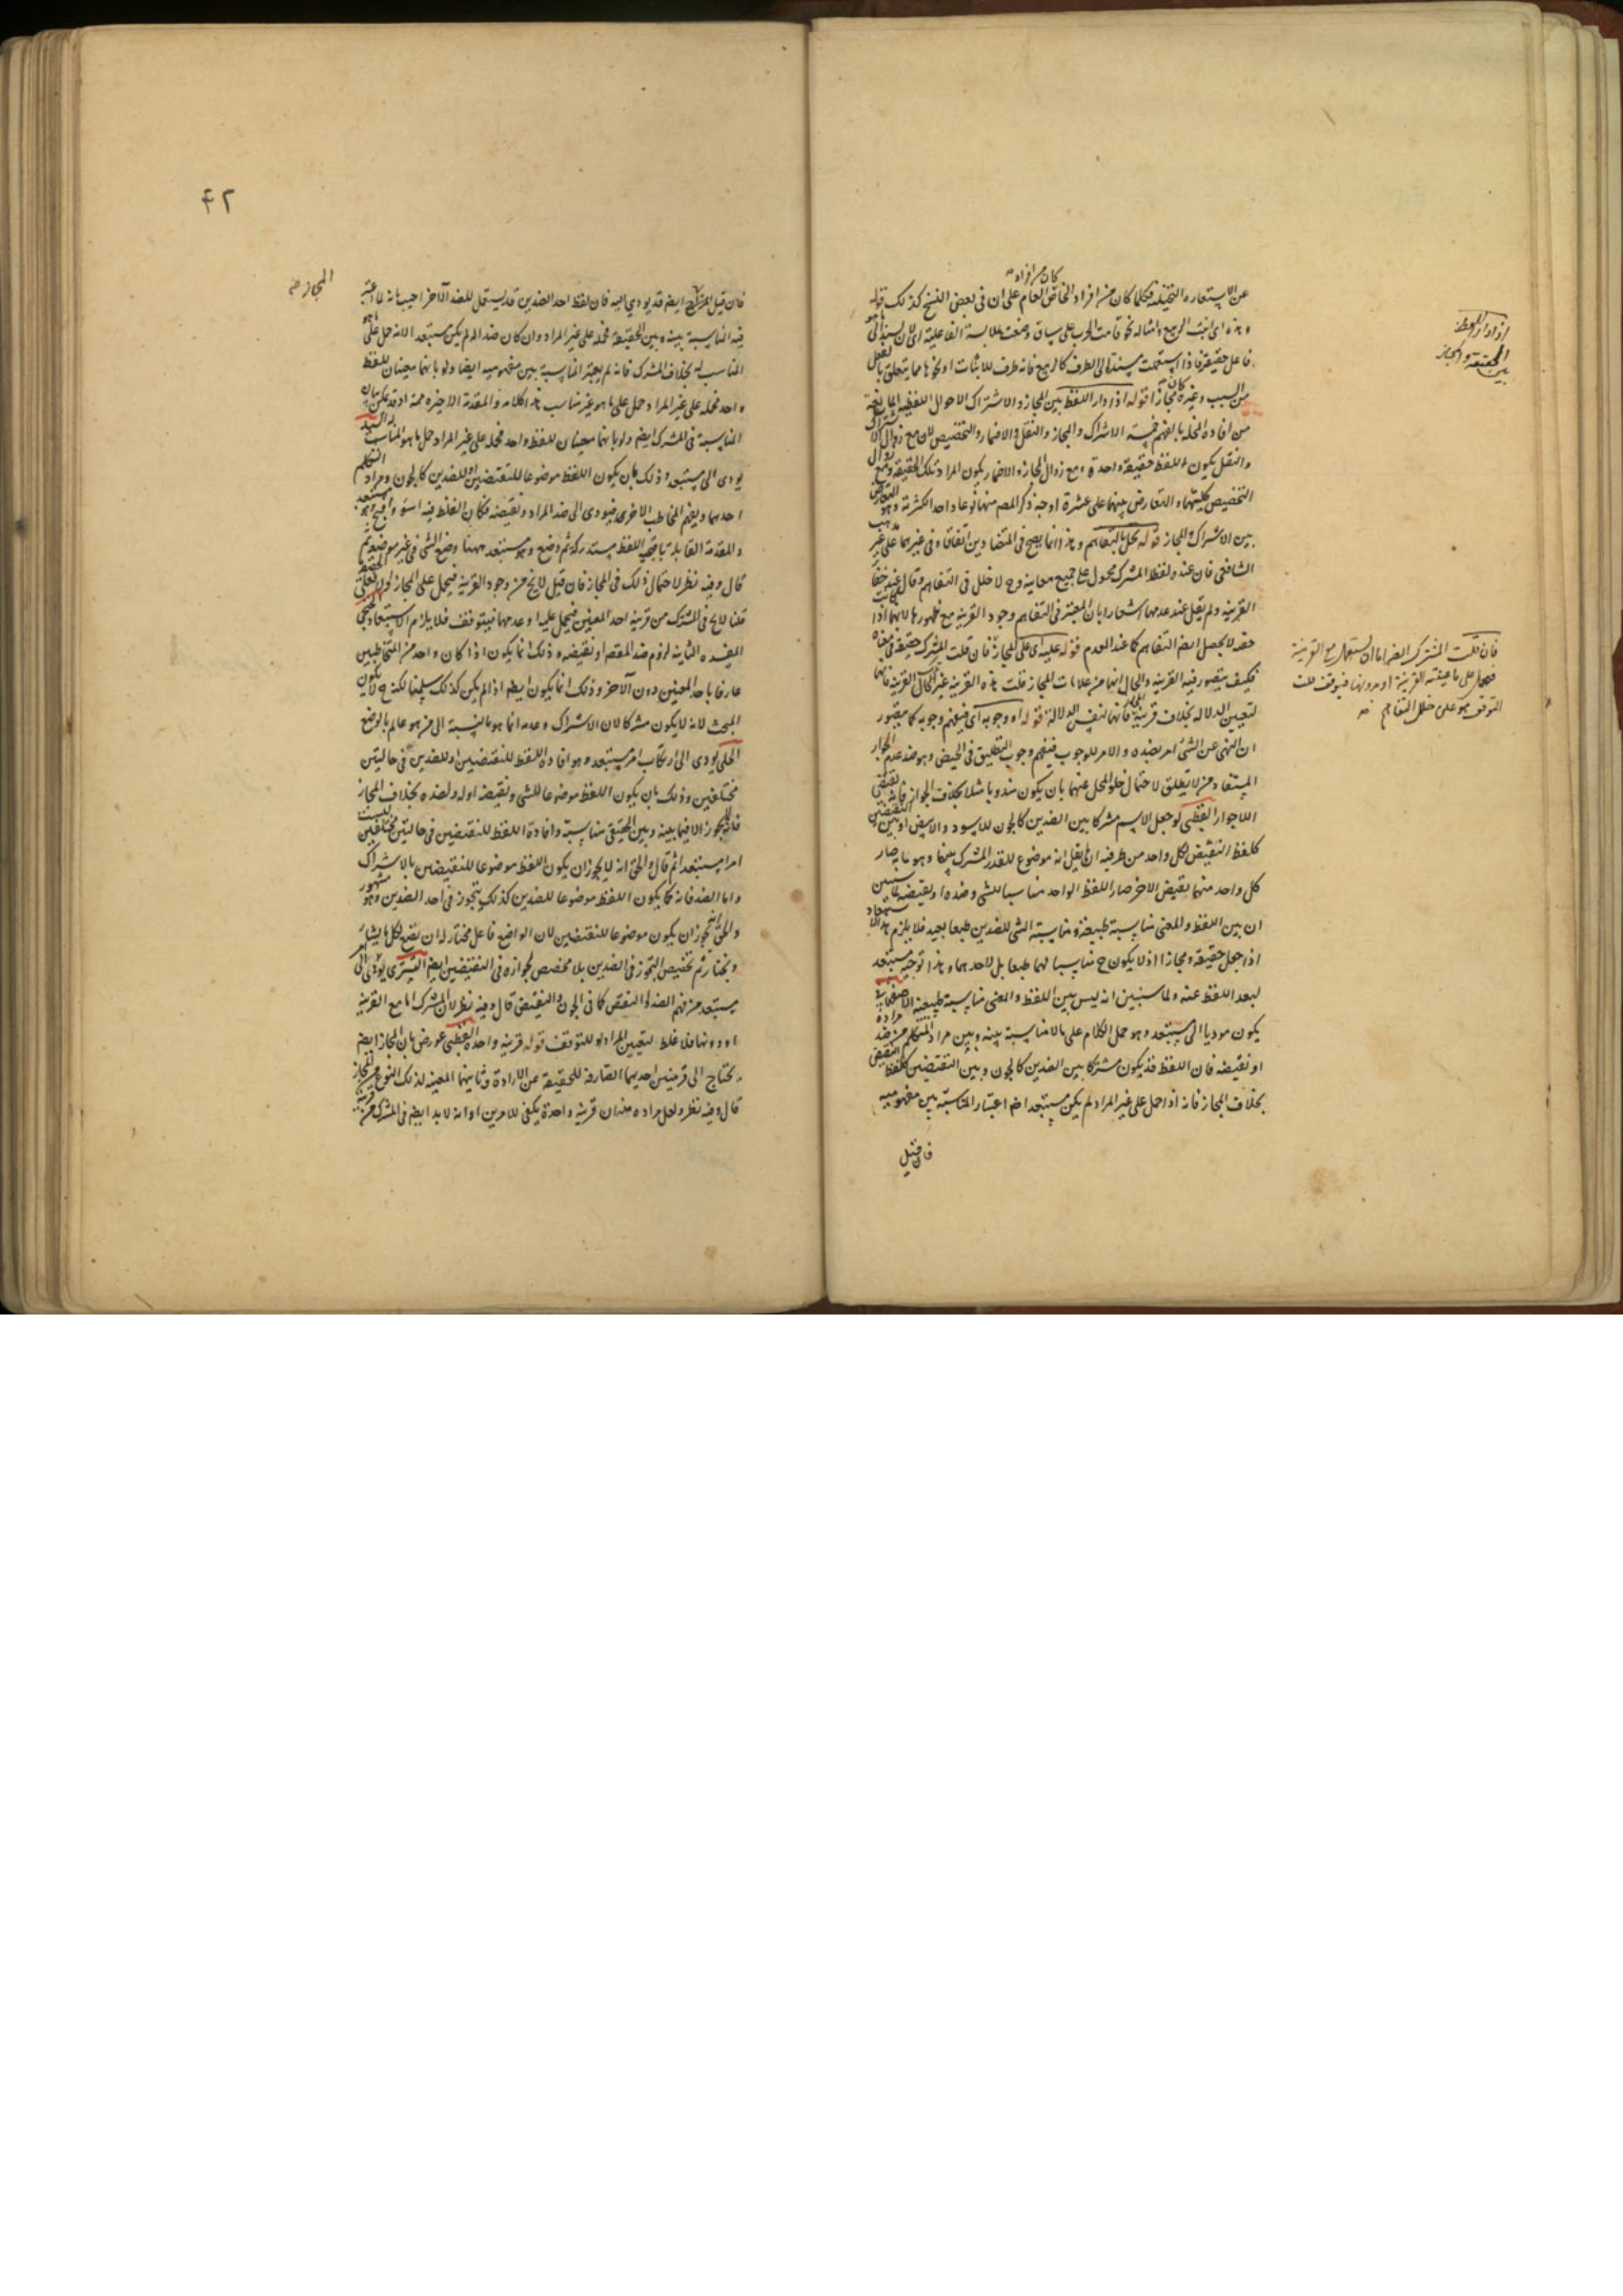 كان من افراد
عن الاستعارة التخييلية فكلما كان من افراد الخاص العام على ان فى بعض النسخ كذلك قوله
وهذه اى انبت الربيع وامثاله نحو قامت الحرب على ساق وضعت لملابسة الفاعلية اى لان يسند الى
فاعل حقيقة فاذا استعملت مسندة الى الظرف كالربيع فانه ظرف للانبات او نحوها مما يتعلق بالفعل
من السبب وغيره كان مجازا قوله اذا دار اللفظ بين المجاز والاشتراك الاحوال اللفظية المانعة
من افادة المخل بالفهم خمسة الاشتراك والمجاز والنقل والاضمار والتخصيص لان مع زوال الاشتراك
والنقل يكون للفظ حقيقة واحدة ومع زوال المجاز والاضمار يكون المراد تلك الحقيقة ومع زوال
التخصيص كليتها والتعارض بينهما على عشرة اوجه ذكر المصم منها نوعا واحدا لكثرته وهو التعارض
بين الاشتراك والمجاز قوله يخل بالتفاهم وهذا انما يصح فى المتضادين اتفاقا وفى غيرهما على غير مذهب
الشافعى فان عنده لفظ المشترك محمول على جميع معانيه وح لا خلل فى التفاهم وقال عند خفاء
القرينة ولم يقل عند عدمها اشعارا بان المعتبر فى التفاهم وجود القرينة مع ظهورها لانها اذا كانت
خفية لا يحصل ايضا التفاهم كما عند العدم قوله عليه اى على المجاز فان قلت المشترك حقيقة فى معناه
فكيف يتصور فيه القرينة والحال انها من علامات المجاز قلت هذه القرينة غير تلك القرينة فانها
لتعيين الدلالة بخلاف قرينة المجاز فانها لنفس الدلالة قوله او وجوبه اى فيفهم وجوبه كما يتصور
ان النهى عن الشئ امر بضده والامر للوجوب فيفهم وجوب التطليق فى الحيض وهو ضد عدم الجواز
المستفاد من لا يطلق لاحتمال خلو المحل عنهما بان يكون مندوبا مثلا بخلاف الجواز فانه نقيض
اللاجواز القطبى لو جعل الاسم مشتركا بين الضدين كالجون للاسود والابيض او بين النقيضين
كلفظ النقيض لكل واحد من طرفيه ان لم يقل انه موضوع للقدر المشترك بينهما وهو ما به صار
كل واحد منهما نقيض الاخر صار اللفظ الواحد مناسبا للشئ وضده او لنقيضه لما سيبين
ان بين اللفظ والمعنى مناسبة طبيعية ومناسبة الشئ للضدين طبعا بعيد فلا يلزم هذا الاستبعاد
اذا جعل حقيقة ومجازا اذ لا يكون ح مناسبا لهما طبعا بل لاحدهما وهذا توجيه مستبعد
لبعد اللفظ عنه ولما سنبين انه ليس بين اللفظ والمعنى مناسبة طبيعية الاصفهانى
يكون موديا الى مستبعد وهو حمل الكلام على ما لا مناسبة بينه وبين مراد المتكلم من ضد مراده
او نقيضه فان اللفظ قد يكون مشتركا بين الضدين كالجون وبين النقيضين كلفظ النقيض
بخلاف المجاز فانه اذا حمل على غير المراد لم يكن مستبعدا ضم اعتبار المناسبة بين مفهوميه
فان قيل
اذا دار اللفظ
بين الحقيقة والمجاز
فان قلت المشترك ايضا اما ان يستعمل مع القرينة
فيحمل على ما عينته القرينة او بدونها فيتوقف قلت
التوقف هو على خلل التفاهم
۴۲
المجاز صح
فان قيل المجاز ايضم قد يودى اليه فان لفظ احد الضدين قد يستعمل للضد الآخر اجيب بانه لما اعتبر
فيه المناسبة بينه وبين الحقيقة فحمله على غير المراد وان كان ضد المراد لم يكن مستبعدا لانه حمل على ما هو
المناسب له بخلاف المشترك فانه لم يعتبر المناسبة بين مفهوميه ايضا ولو بانهما معينان للفظ
واحد فحمله على غير المراد حمل على ما هو غير مناسب هذا كلامه والمقدمة الاخيرة ممة اذ قد يمكن بيان
المناسبة فى المشترك ايضم ولو بانهما معينان للفظ واحد فحمله على غير المراد حمل ما هو المناسب له السيد
يودى الى مستبعد وذلك بان يكون اللفظ موضوعا للنقيضين او للضدين كالجون ومراد المتكلم
احدهما ويفهم المخاطب الاخر فيودى الى ضد المراد ونقيضه فكان الغلط فيه اسوء واقبح وهو مستبعد
والمقدمة القايلة اللفظ مستدركة ثم وضع وهو مستبعد ههنا وضع الشئ فى غير موضعه ثم
قال وفيه نظر لاحتمال ذلك فى المجاز فان قيل لا يخ من وجود القرينة فيحمل على المجاز او لا فعلى الحقيقة
قلنا لا يخ فى المشترك من قرينة احد المعنيين فيحمل عليه او عدمها فيتوقف فلا يلزم الاستبعاد الخنجى
المفسدة الثانية لزوم ضد المقصم او نقيضه وذلك انما يكون اذا كان واحد من المتخاطبين
عارفا باحد المعنيين دون الآخر وذلك انما يكون ايضم اذا لم يكن كذلك سلمنا لكنه ح لا يكون
المبحث لانه لا يكون مشتركا لان الاشتراك وعدمه انما هو بالنسبة الى من هو عالم بالوضع
الحلى يودى الى ارتكاب امر مستبعد وهو افادة اللفظ للنقيضين او للضدين فى حالتين
مختلفتين وذلك بان يكون اللفظ موضوعا للشئ ونقيضه او له ولضده بخلاف المجاز
فانه لا يجوز الا فيما بينه وبين الحقيقى مناسبة وافادة اللفظ للنقيضين فى حالتين مختلفتين ليست
امرا مستبعدا ثم قال والحق انه لا يجوز ان يكون اللفظ موضوعا للنقيضين بالاشتراك
واما الضد فانه كما يكون اللفظ موضوعا للضدين كذلك يتجوز فى احد الضدين وهو مشهور
والحق انه يجوز ان يكون موضوعا للنقيضين لان الواضع فاعل مختار له ان يضع لكل ما يشاء
ويختار ثم تخصيص التجوز فى الضدين بلا مخصص لجوازه فى النقيضين ايضم التسترى يودى الى امر
مستبعد من فهم الضد او النقيض كما فى الجون والنقيض قال وفيه نظر لان المشترك اما مع القرينة
او دونها فلا غلط لتعيين المراد او للتوقف قوله قرينة واحدة القطبى عورض بان المجاز ايضم
يحتاج الى قرينتين احديهما الصارفة للحقيقة عن الارادة وثانيهما المعينة لذلك النوع من المجاز
قال وفيه نظر ولعل مراده منه ان قرينة واحدة يكفى للامرين او انه لا بد ايضم فى المشترك من قرينة